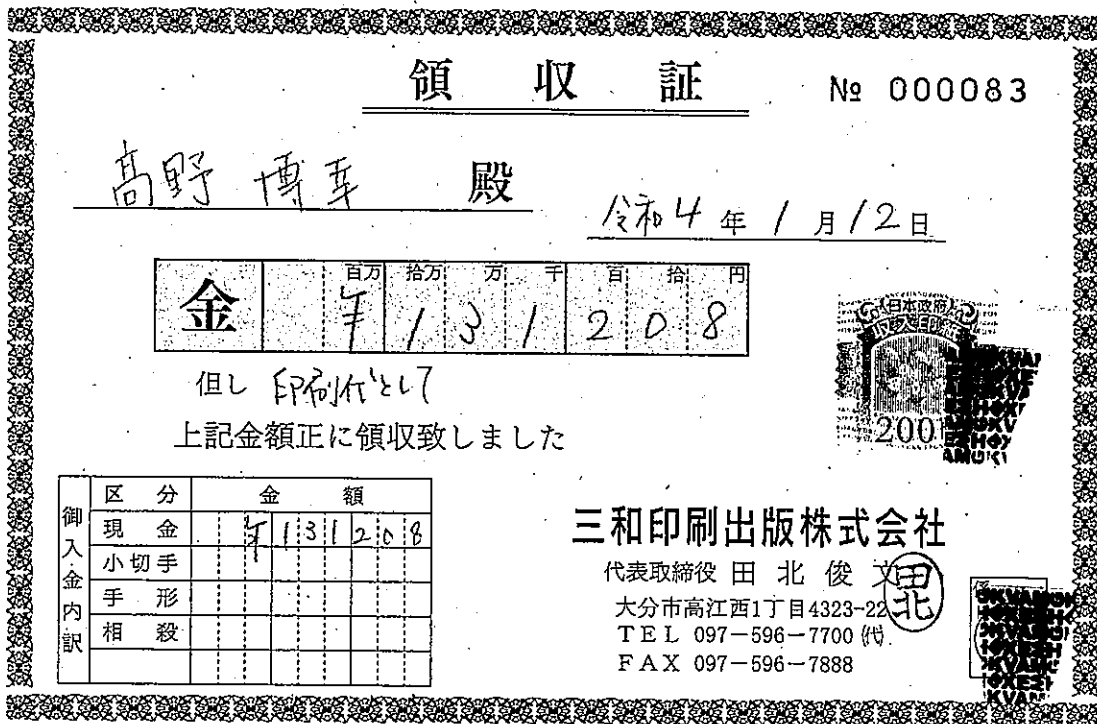 領収証
№ 000083
髙野 博幸 殿
令和4年1月12日
百万 拾万 万 千 百 拾 円
金 ¥131208
但し 印刷代として
上記金額正に領収致しました
日本政府
収入印紙
200
御入金内訳
区分 金額
現金 ¥131208
小切手
手形
相殺
三和印刷出版株式会社
代表取締役 田北俊文
田北
大分市高江西1丁目4323-22
TEL 097-596-7700 ㈹
FAX 097-596-7888